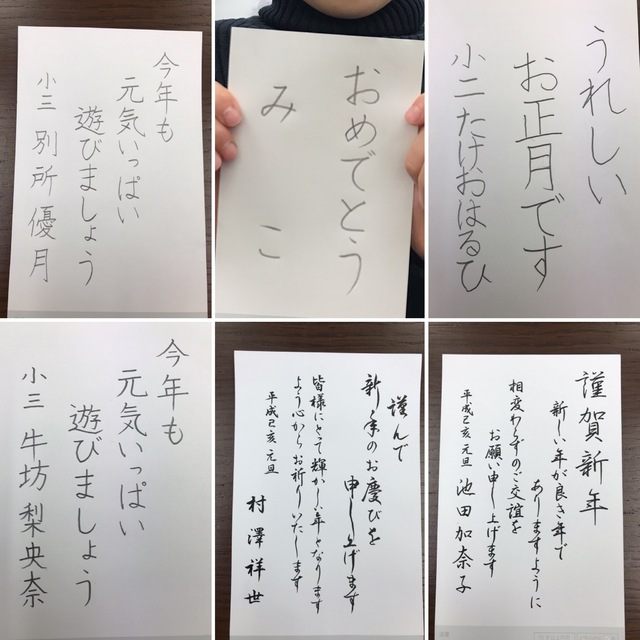 今年も
元気いっぱい
遊びましょう
小三 別所優月
おめでとう
みこ
うれしい
お正月です
小二 たけおはるひ
今年も
元気いっぱい
遊びましょう
小三 牛坊梨央奈
謹んで
新年のお慶びを
申し上げます
皆様にとって輝かしい年となります
よう心からお祈りいたします
平成己亥 元旦
村澤祥世
謹賀新年
新しい年が良き年で
ありますように
相変わらずのご交誼を
お願い申し上げます
平成己亥 元旦 池田加奈子